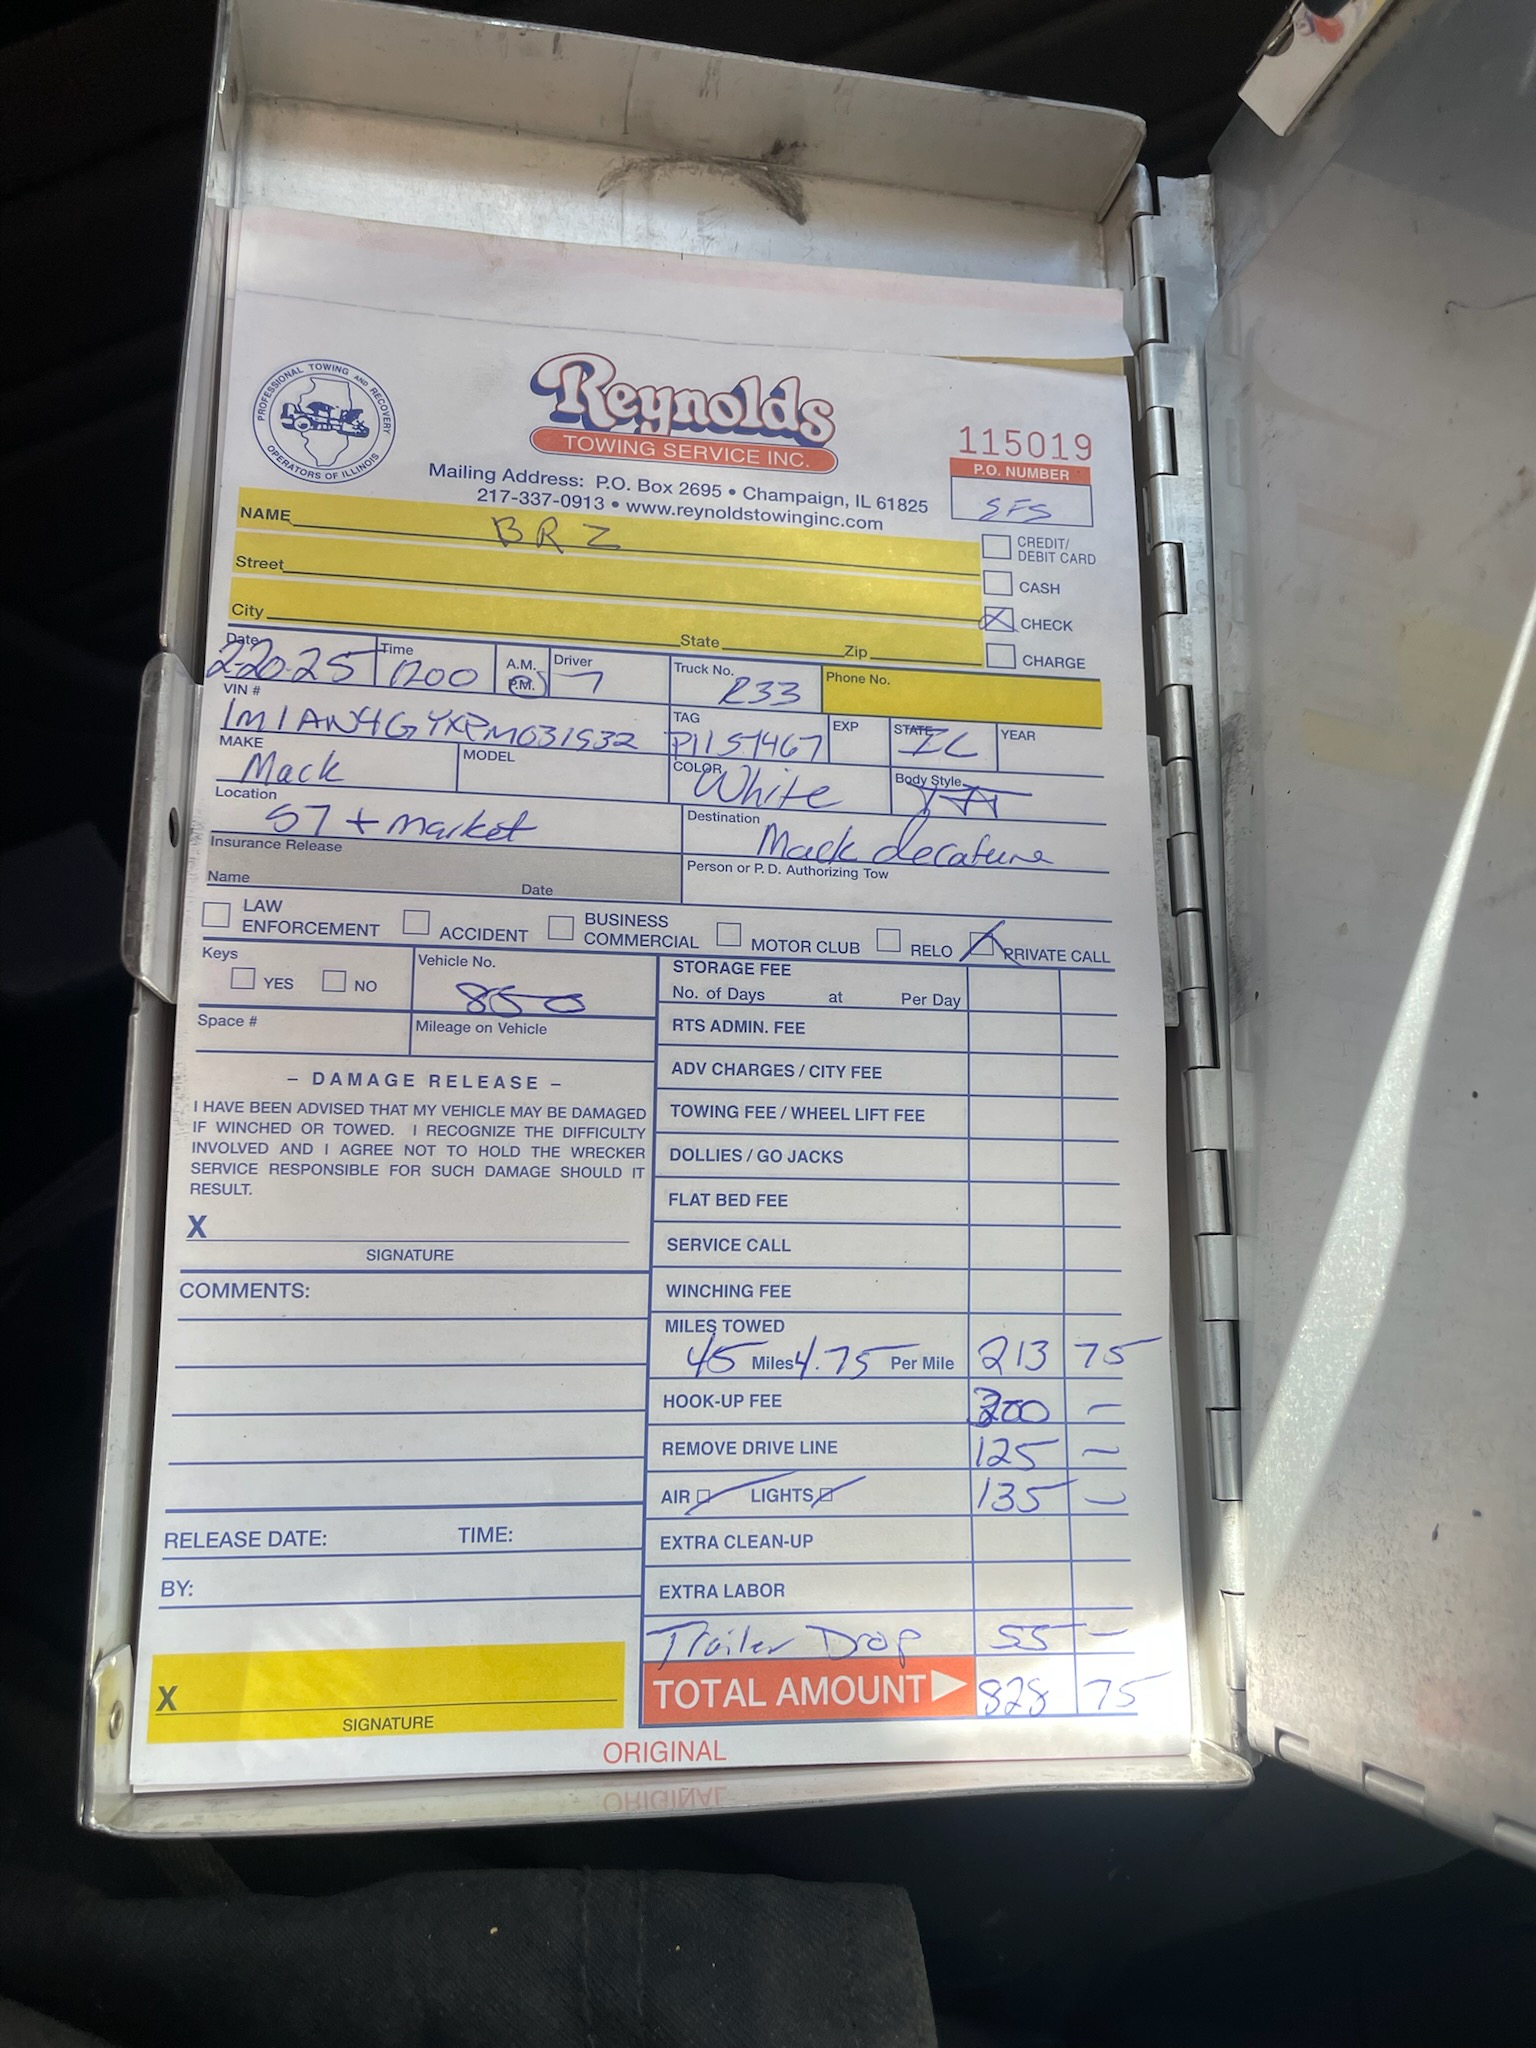 PROFESSIONAL TOWING AND RECOVERY
OPERATORS OF ILLINOIS
Reynolds
TOWING SERVICE INC.
Mailing Address: P.O. Box 2695 • Champaign, IL 61825
217-337-0913 • www.reynoldstowinginc.com
115019
P.O. NUMBER
SFS
NAME BRZ
Street
City State Zip
CREDIT/
DEBIT CARD
CASH
CHECK
CHARGE
Date 2-20-25 Time 1200 A.M. P.M. Driver 7 Truck No. R33 Phone No.
VIN # 1M1AN4GYXPM031532 TAG P1157467 EXP STATE IL YEAR
MAKE Mack MODEL COLOR White Body Style
Location 57 + market Destination Mack
Insurance Release Person or P.D. Authorizing Tow
Name Date
LAW
ENFORCEMENT
ACCIDENT
BUSINESS
COMMERCIAL
MOTOR CLUB
RELO
PRIVATE CALL
Keys
YES NO
Vehicle No. 850
Space # Mileage on Vehicle
– DAMAGE RELEASE –
I HAVE BEEN ADVISED THAT MY VEHICLE MAY BE DAMAGED
IF WINCHED OR TOWED. I RECOGNIZE THE DIFFICULTY
INVOLVED AND I AGREE NOT TO HOLD THE WRECKER
SERVICE RESPONSIBLE FOR SUCH DAMAGE SHOULD IT
RESULT.
X
SIGNATURE
COMMENTS:
RELEASE DATE: TIME:
BY:
X
SIGNATURE
STORAGE FEE
No. of Days at Per Day
RTS ADMIN. FEE
ADV CHARGES / CITY FEE
TOWING FEE / WHEEL LIFT FEE
DOLLIES / GO JACKS
FLAT BED FEE
SERVICE CALL
WINCHING FEE
MILES TOWED
45 Miles 4.75 Per Mile 213 75
HOOK-UP FEE 300 –
REMOVE DRIVE LINE 125 –
AIR LIGHTS 135 –
EXTRA CLEAN-UP
EXTRA LABOR
Trailer Drop 55 –
TOTAL AMOUNT 828 75
ORIGINAL
ORIGINAL